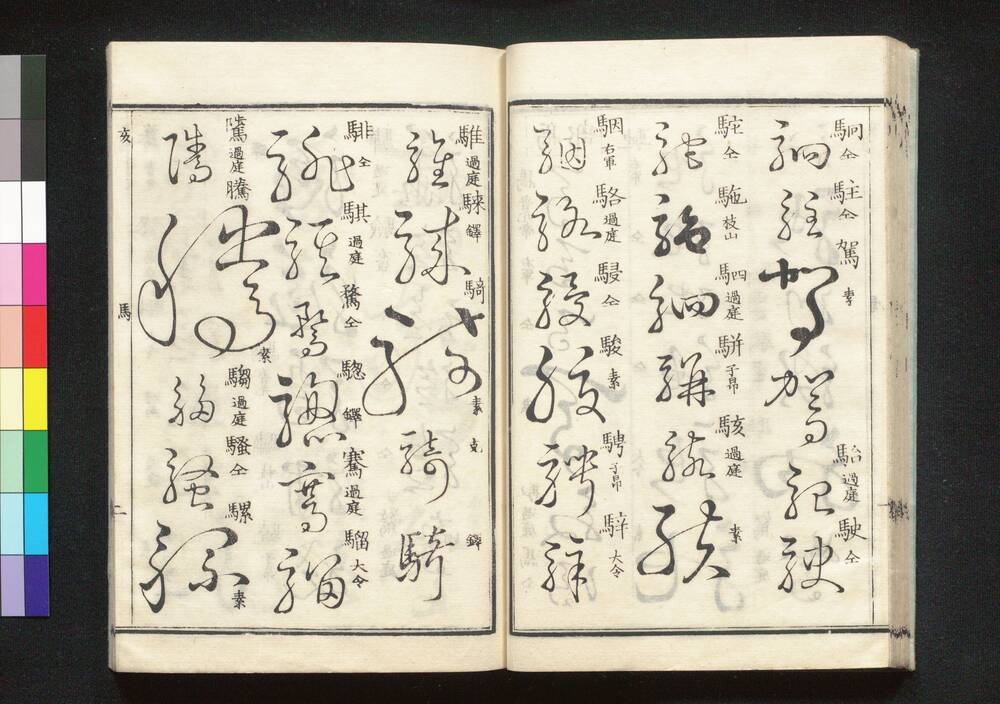 駉 仝 駐 仝 駕 素 駘 過庭 駛 仝
駝 仝 駞 枝山 駟 過庭 駢 子昂 駭 過庭 素
駰 右軍 駱 過庭 駸 仝 駿 素 騁 子昂 騂 大令
騅 過庭 騋 鐸 騎 素 克 鐸
騑 仝 騏 過庭 騖 仝 騘 鐸 騫 過庭 騮 大令
騭 過庭 騰 素 騶 過庭 騷 仝 騾 素
亥 馬 二